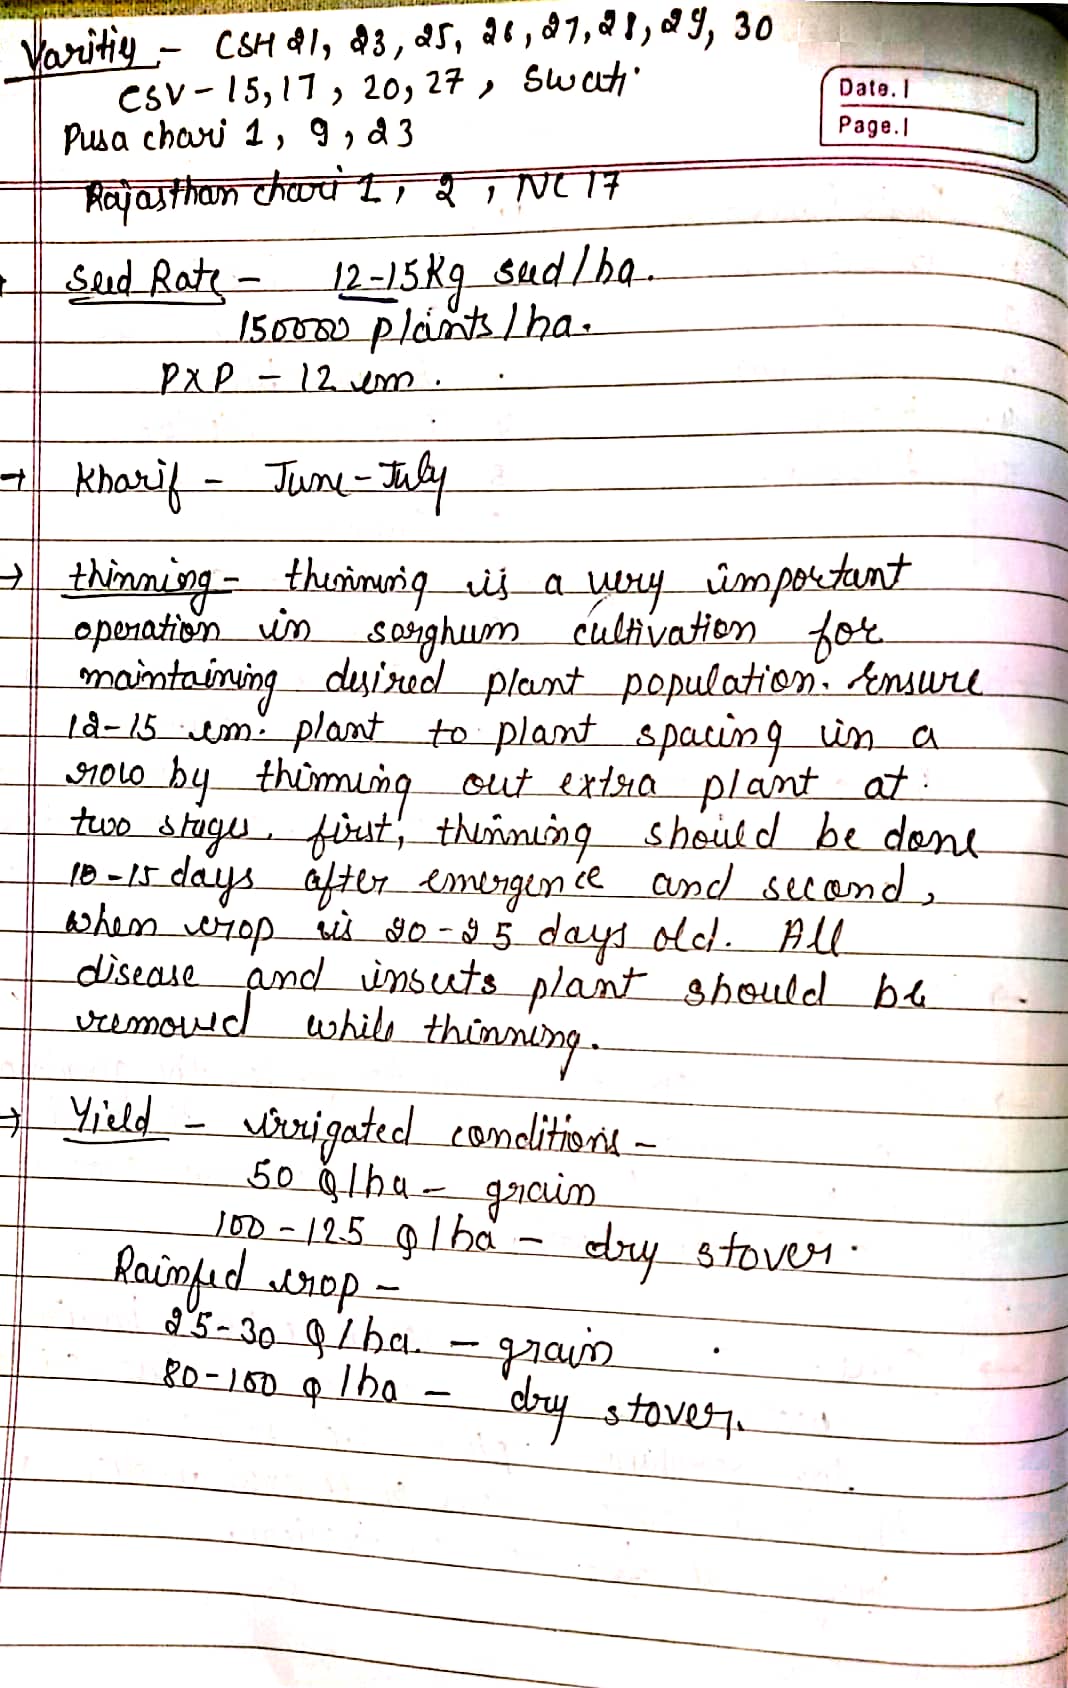 Varitiy - CSH 21, 23, 25, 26, 27, 28, 29, 30
CSV - 15, 17, 20, 27, Swati
Pusa chari 1, 9, 23
Date.
Page.
Rajasthan chari 1, 2, NC 17
Seed Rate - 12-15 kg seed/ha.
150000 plants/ha.
P×P - 12 cm.
→ Kharif - June-July
→ thinning - thinning is a very important
operation in sorghum cultivation for
maintaining desired plant population. Ensure
12-15 cm. plant to plant spacing in a
row by thinning out extra plant at
two stages. first, thinning should be done
10-15 days after emergence and second,
when crop is 20-25 days old. All
disease and insects plant should be
removed while thinning.
→ Yield - irrigated conditions -
50 q/ha - grain
100-125 q/ha - dry stover.
Rainfed crop -
25-30 q/ha. - grain
80-100 q/ha - dry stover.